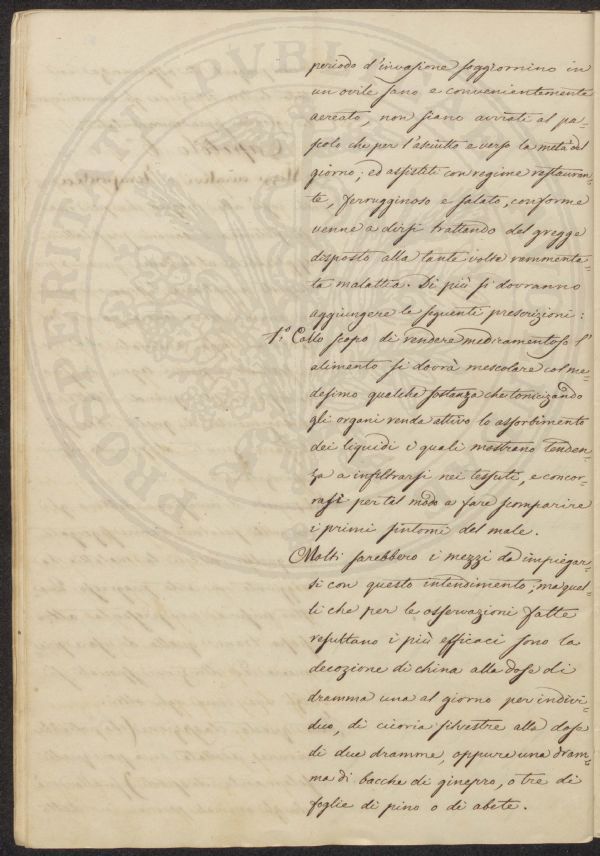 periodo d'invasione soggiornino in
un ovile sano e convenientemente
aereato, non siano avviati al pa=
scolo che per l'asciutto e verso la metà del
giorno; ed assistiti con regime restauran=
te, ferrugginoso e salato, conforme
venne a dirsi trattando del gregge
disposto alla tante volte rammenta=
ta malattia. Di più si dovranno
aggiungere le seguenti prescrizioni:
1.° Collo scopo di rendere medicamentoso l'
alimento si dovrà mescolare col me=
desimo qualche sostanza che tonicizando
gli organi renda attivo lo assorbimento
dei liquidi i quali mostrano tenden=
za a infiltrarsi nei tessuti, e concor=
rasi per tal modo a fare scomparire
i primi sintomi del male.
Molti sarebbero i mezzi da impiegar=
si con questo intendimento; ma quel=
li che per le osservazioni fatte
resultano i più efficaci sono la
decozione di china alla dose di
dramma una al giorno per indivi=
duo, di cicoria silvestre alla dose
di due dramme, oppure una dram=
ma di bacche di ginepro, o tre di
foglie di pino o di abete.
PROSPERITATI PUBLICAE